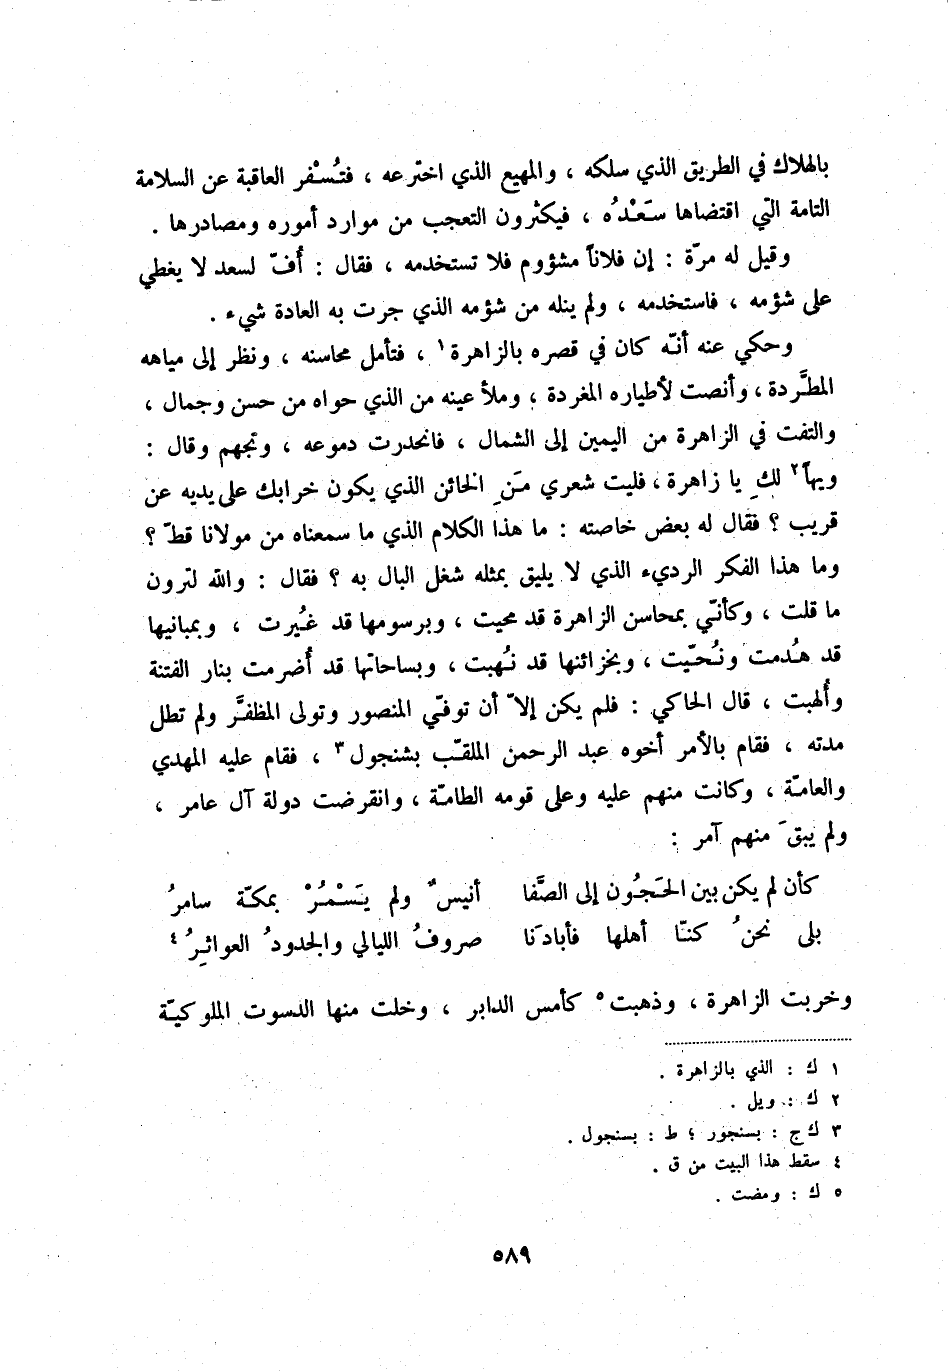 بالهلاك في الطريق الذي سلكه ، والمهيع الذي اخترعه ، فتُسْفر العاقبة عن السلامة
التامة التي اقتضاها سَعْدُه ، فيكثرون التعجب من موارد أموره ومصادرها .
وقيل له مرّة : إن فلاناً مشؤوم فلا تستخدمه ، فقال : أُفّ لسعد لا يغطي
على شؤمه ، فاستخدمه ، ولم ينله من شؤمه الذي جرت به العادة شيء .
وحكي عنه أنّه كان في قصره بالزاهرة١ ، فتأمل محاسنه ، ونظر إلى مياهه
المطَّردة ، وأنصت لأطياره المغردة ، وملأ عينه من الذي حواه من حسن وجمال ،
والتفت في الزاهرة من اليمين إلى الشمال ، فانحدرت دموعه ، وتجهم وقال :
ويهاً٢ لكِ يا زاهرة ، فليت شعري مَنِ الخائن الذي يكون خرابك على يديه عن
قريب ؟ فقال له بعض خاصته : ما هذا الكلام الذي ما سمعناه من مولانا قطّ ؟
وما هذا الفكر الرديء الذي لا يليق بمثله شغل البال به ؟ فقال : والله لترون
ما قلت ، وكأنّي بمحاسن الزاهرة قد محيت ، وبرسومها قد غُيرت ، وبمبانيها
قد هُدمت ونُحّيت ، وبخزائنها قد نُهبت ، وبساحاتها قد أُضرمت بنار الفتنة
وأُلهبت ، قال الحاكي : فلم يكن إلاّ أن توفّي المنصور وتولى المظفَّر ولم تطل
مدته ، فقام بالأمر أخوه عبد الرحمن الملقّب بشنجول٣ ، فقام عليه المهدي
والعامّة ، وكانت منهم عليه وعلى قومه الطامّة ، وانقرضت دولة آل عامر ،
ولم يبقَ منهم آمر :
كأن لم يكن بين الحَجُون إلى الصَّفا أنيسٌ ولم يَسْمُرْ بمكّة سامرُ
بلى نحنُ كنّا أهلها فأبادَنا صروفُ الليالي والجدودُ العواثِرُ٤
وخربت الزاهرة ، وذهبت٥ كأمس الدابر ، وخلت منها الدسوت الملوكيّة
١ ك : الذي بالزاهرة .
٢ ك : ويل .
٣ ك ج : بسنجور ؛ ط : بسنجول .
٤ سقط هذا البيت من ق .
٥ ك : ومضت .
٥٨٩